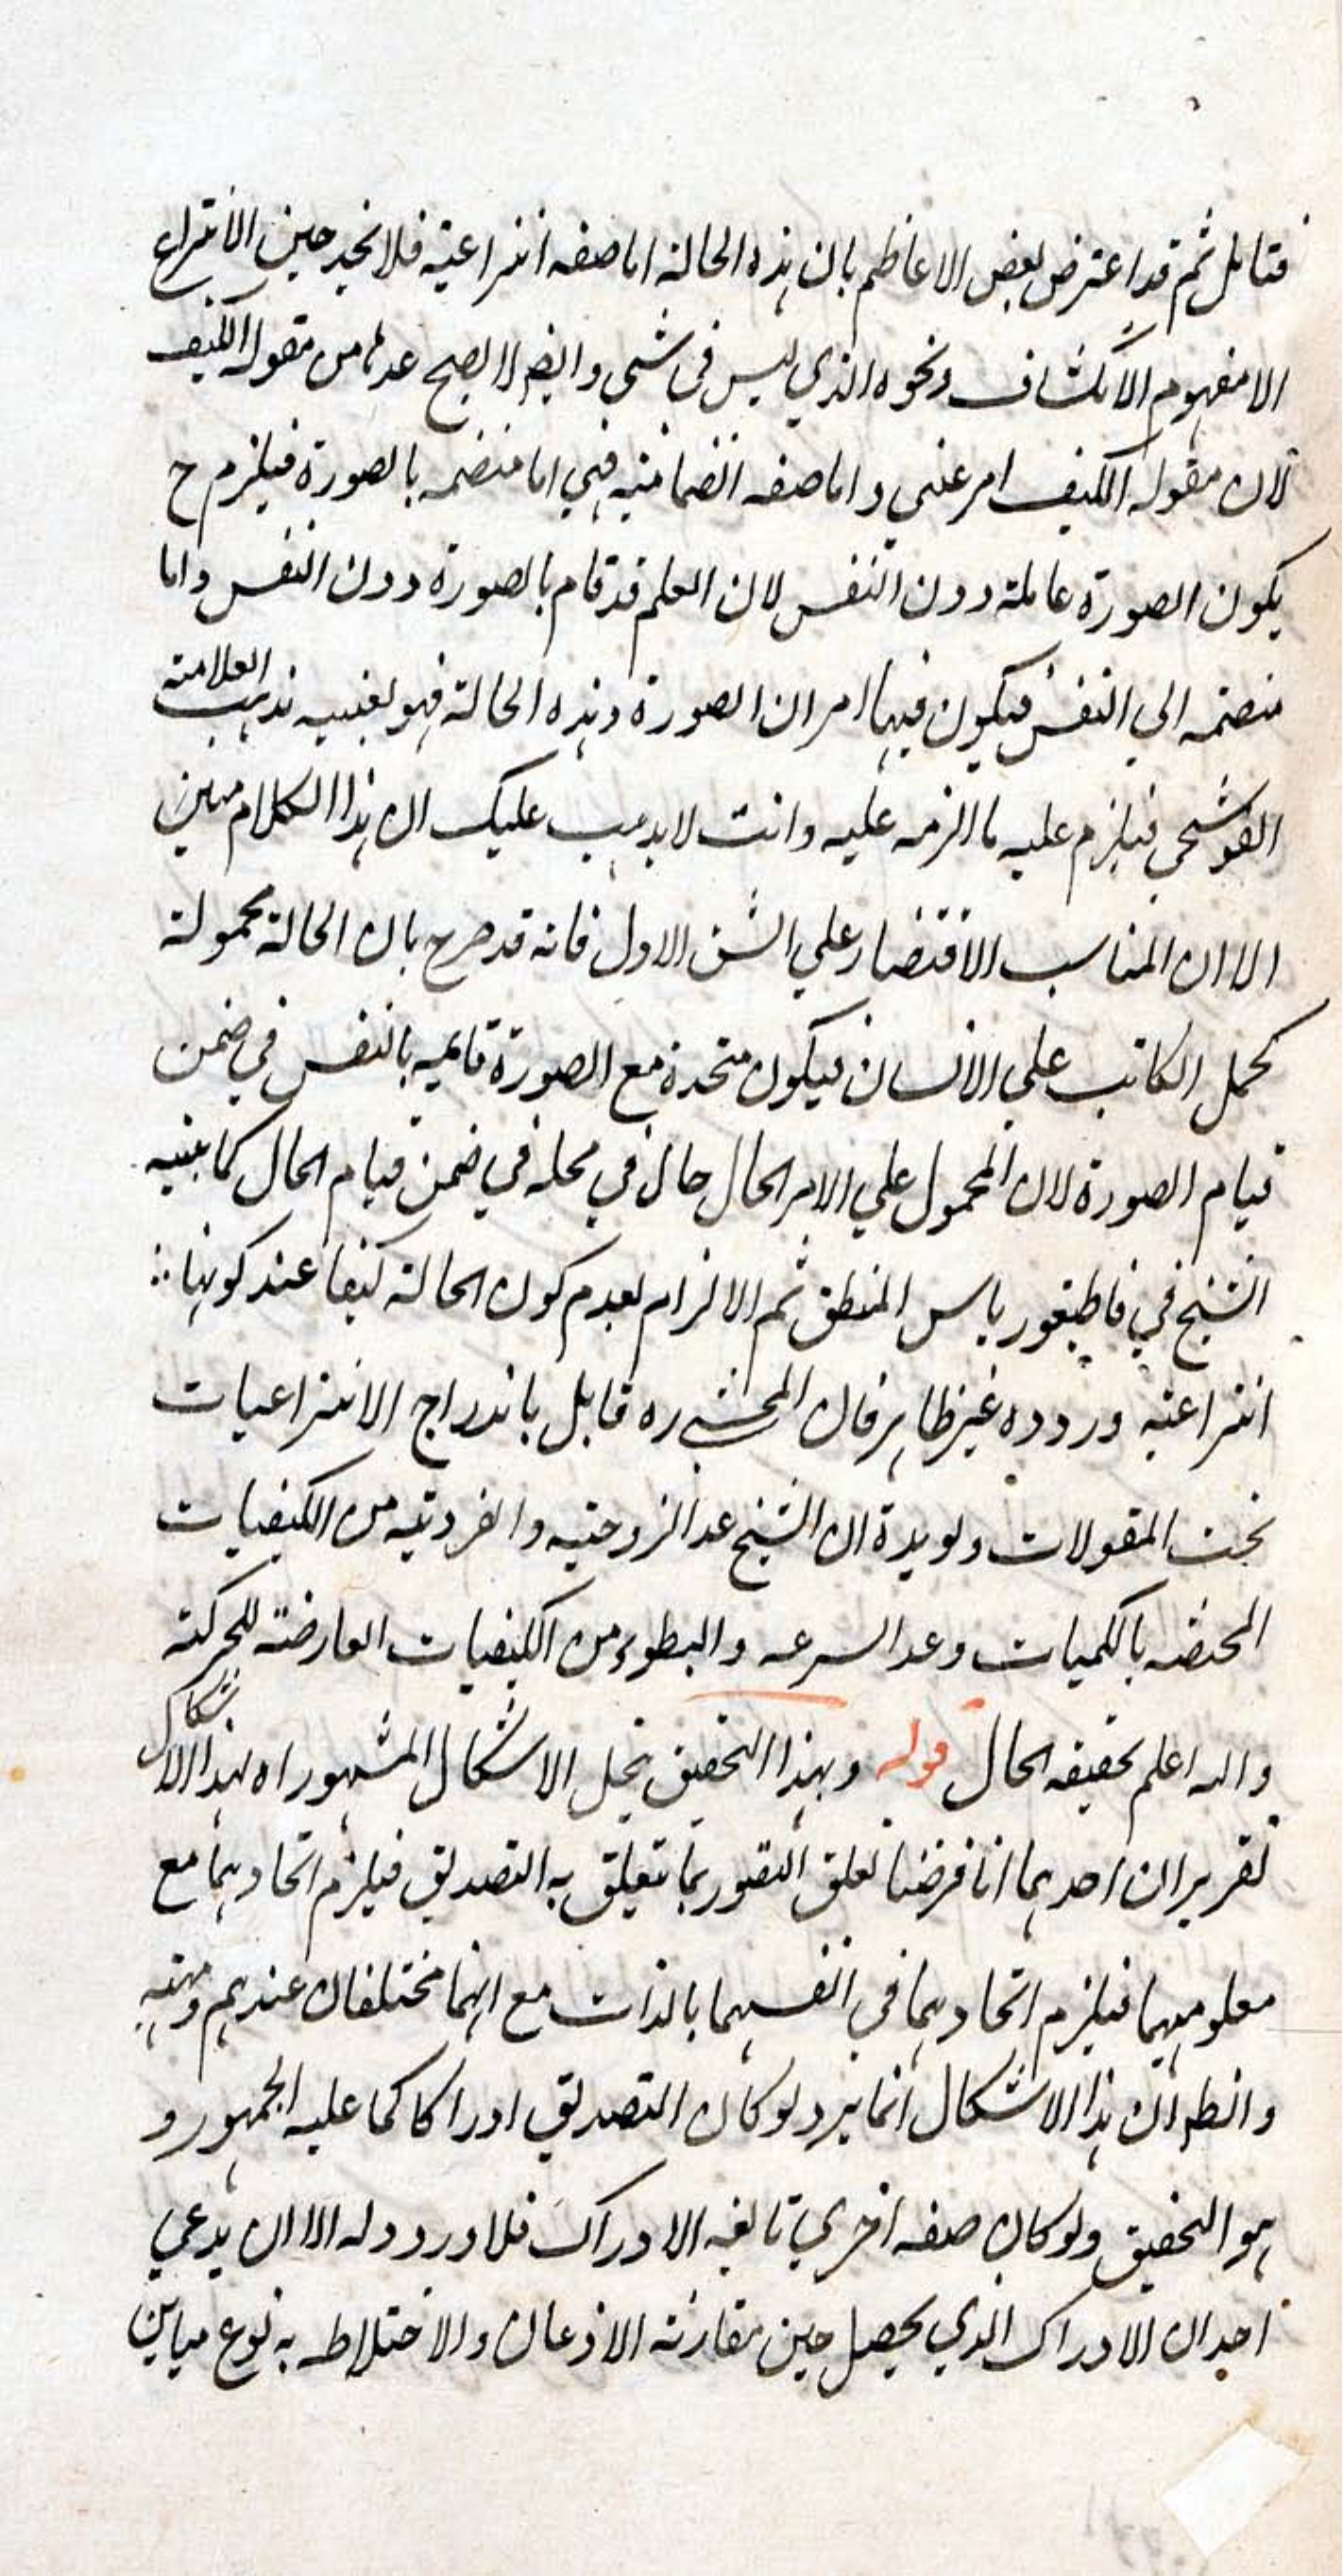 فتامل ثم قد اعترض بعض الاعاظم بان هذه الحالة اما صفه انتزاعية فلا نجد حين الانتزاع
الا مفهوم الانكشاف ونحوه الذي ليس في شي وايضا لا يصح عدها من مقولة الكيف
لان مقوله الكيف امر عيني واما صفه انضمامية فهي اما منضمه بالصورة فيلزم ح
يكون الصورة عاملة دون النفس لان العلم قد قام بالصورة دون النفس واما
منضمه الي النفس فيكون فيها امران الصورة وهذه الحالة فهو بعينيه مذهب العلامة
القوشجي فيلزم عليه ما الزمه عليه وانت لا يذهب عليك ان هذا الكلام متين
الا ان المناسب الاقتصار علي الشق الاول فانه قد صرح بان الحالة محمولة
كحمل الكاتب علي الانسان فيكون متحدة مع الصورة قايمه بالنفس في ضمن
قيام الصورة لان المحمول علي الامر الحال حال في محله في ضمن قيام الحال كما بينه
الشيخ في قاطيغورياس المنطق ثم الالزام بعدم كون الحالة كيفا عند كونها
انتزاعية وروده غير ظاهر فان المحشي ره قايل باندراج الانتزاعيات
تحت المقولات ويويده ان الشيخ عد الزوجيه والفرديه من الكيفيات
المختصه بالكميات وعد السرعه والبطوء من الكيفيات العارضة للحركة
والله اعلم بحقيقه الحال قوله وبهذا التحقيق ينحل الاشكال المشهور اه لهذا الاشكال
تقريران احدهما انا فرضنا تعلق التصور بما يتعلق به التصديق فيلزم اتحادهما مع
معلوميهما فيلزم اتحادهما في انفسهما بالذات مع انهما مختلفان عندهم
وانظر ان هذا الاشكال انما يرد لو كان التصديق ادراكا كما عليه الجمهور و
هو التحقيق ولو كان صفه اخري الادراك فلا ورود له الا ان يدعي
احد ان الادراك الذي يحصل حين مقارنة الاذعان والاختلاط به نوع مباين